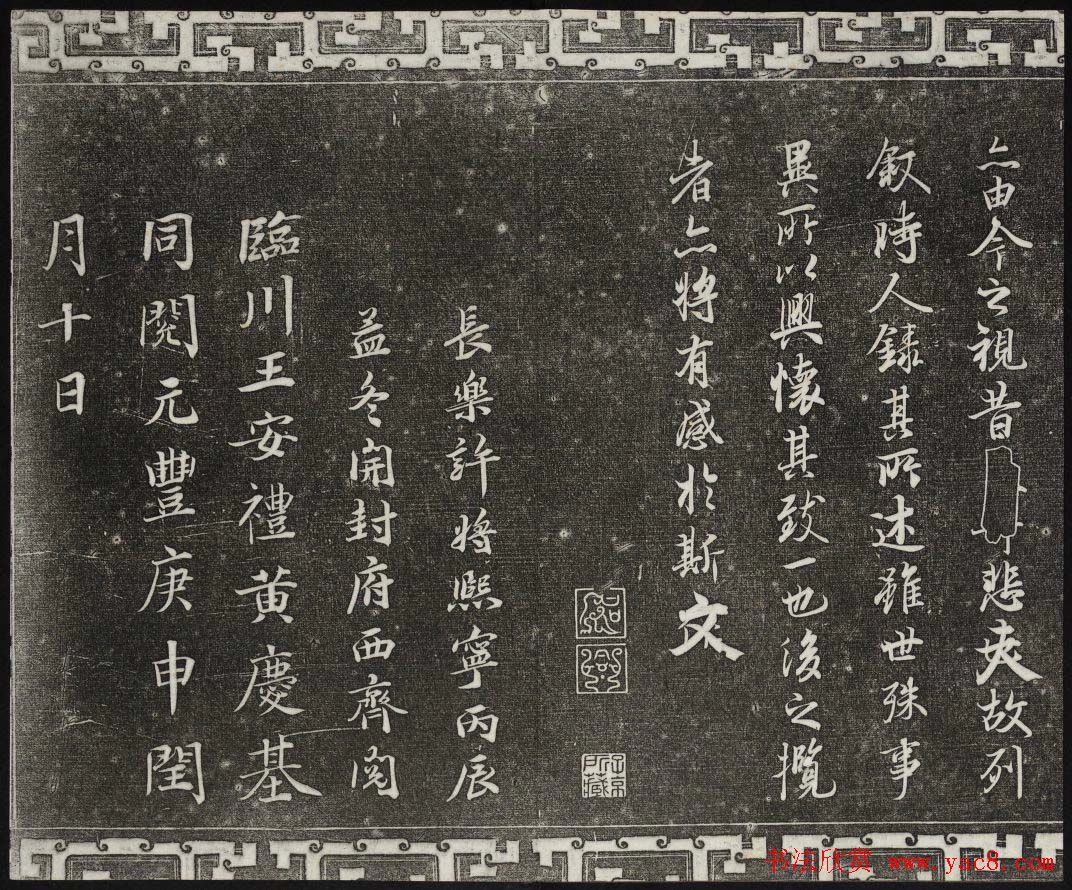 亦由今之視昔悲夫故列
叙時人錄其所述雖世殊事
異所以興懷其致一也後之攬
者亦將有感於斯文
長樂許將熙寧丙辰
孟冬開封府西齋閱
臨川王安禮黃慶基
同閱元豐庚申閏
月十日
书法欣赏 www.yac8.com